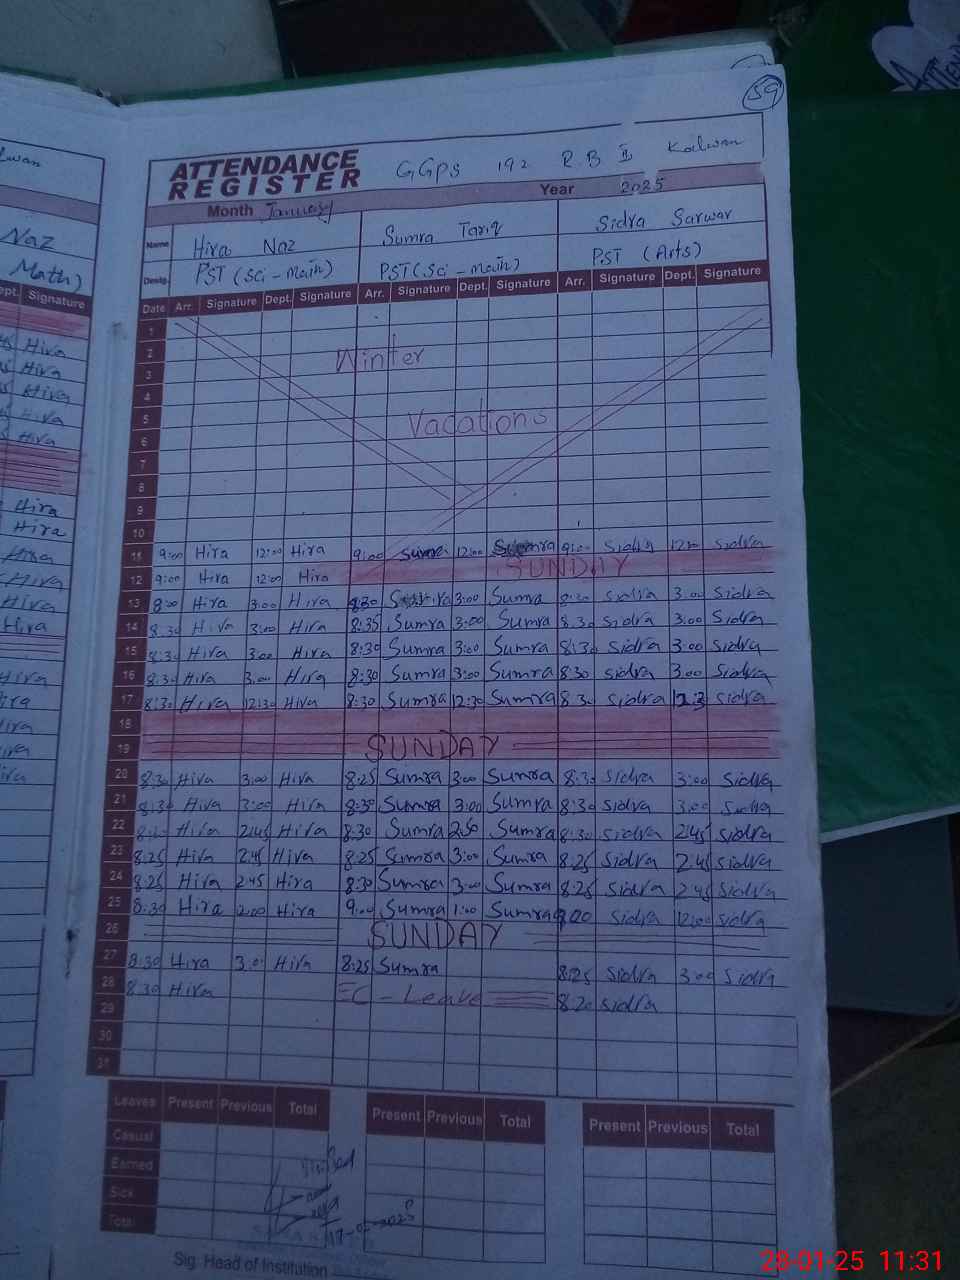 59
ATTENDANCE REGISTER GGPS 192 R.B II Kalwan
Month January Year 2025
Name Hira Naz Sumra Tariq Sidra Sarwar
Desig. PST (Sci - Math) PST (Sci - Math) PST (Arts)
Date Arr. Signature Dept. Signature Arr. Signature Dept. Signature Arr. Signature Dept. Signature
1
2 Winter
3
4
5 Vacations
6
7
8
9
10
11 9:00 Hira 12:00 Hira 9:00 Sumra 12:00 Sumra 9:00 Sidra 12:00 Sidra
12 9:00 Hira 12:00 Hira SUNDAY
13 8:00 Hira 3:00 Hira 8:30 3:00 Sumra 8:30 Sidra 3:00 Sidra
14 8:30 Hira 3:00 Hira 8:35 Sumra 3:00 Sumra 8:30 Sidra 3:00 Sidra
15 8:30 Hira 3:00 Hira 8:30 Sumra 3:00 Sumra 8:30 Sidra 3:00 Sidra
16 8:30 Hira 3:00 Hira 8:30 Sumra 3:00 Sumra 8:30 Sidra 3:00 Sidra
17 8:30 Hira 12:30 Hira 8:30 Sumra 12:30 Sumra 8:30 Sidra Sidra
18
19 SUNDAY
20 8:30 Hira 3:00 Hira 8:25 Sumra 3:00 Sumra 8:30 Sidra 3:00 Sidra
21 8:30 Hira 3:00 Hira 8:30 Sumra 3:00 Sumra 8:30 Sidra 3:00 Sidra
22 Hira 2:45 Hira 8:30 Sumra 2:50 Sumra 8:30 Sidra 2:45 Sidra
23 8:25 Hira 2:45 Hira 8:25 Sumra 3:00 Sumra 8:25 Sidra 2:45 Sidra
24 8:25 Hira 2:45 Hira 8:30 Sumra 3:00 Sumra 8:25 Sidra 2:45 Sidra
25 8:30 Hira Hira 9:00 Sumra 1:00 Sumra 9:00 Sidra 12:00 Sidra
26 SUNDAY
27 8:30 Hira 3:0 Hira 8:25 Sumra 8:25 Sidra 3:00 Sidra
28 8:30 Hira EC - Leave 8:20 Sidra
29
30
31
Leaves Present Previous Total Present Previous Total Present Previous Total
Casual
Earned
Sick
Total
Sig: Head of Institution
Naz
Math)
Dept. Signature
Hira
Hira
Hira
Hira
Hira
Hira
Hira
Hira
Hira
Hira
Hira
28-01-25 11:31